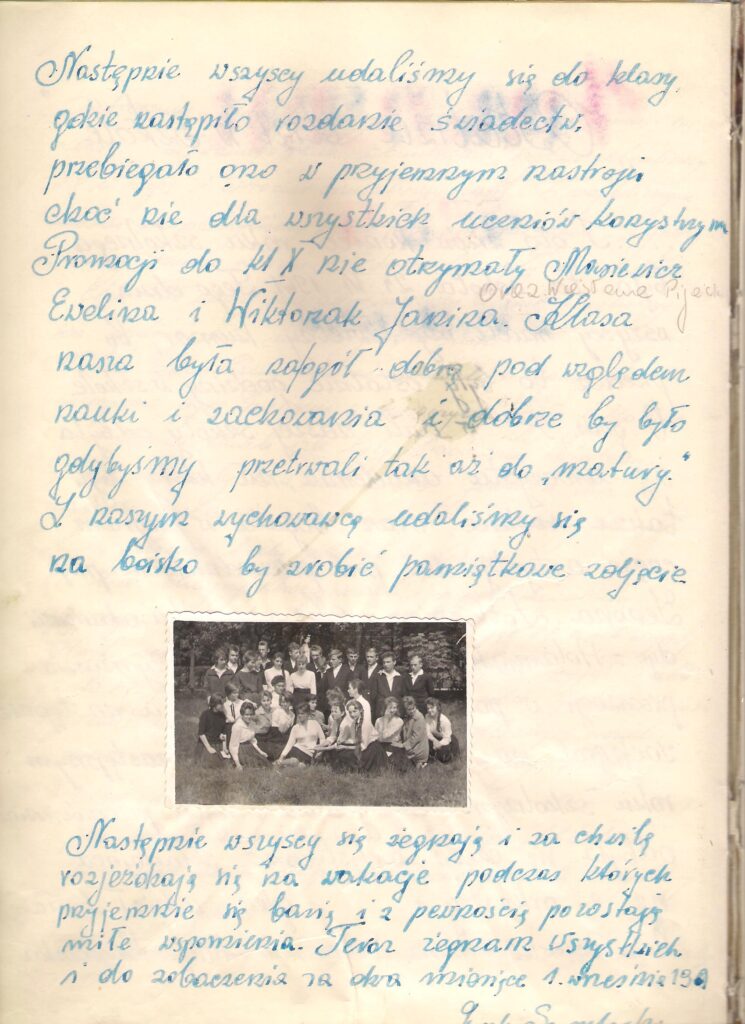 Następnie wszyscy udaliśmy się do klasy
gdzie nastąpiło rozdanie świadectw.
przebiegało ono w przyjemnym nastroju
choć nie dla wszystkich uczniów korzystnym
Promocji do kl X nie otrzymały Masiewicz
oraz Wiesława Pijach
Ewelina i Wiktorzak Janina. Klasa
nasza była naogół dobrą pod względem
nauki i zachowania i dobrze by było
gdybyśmy przetrwali tak aż do „matury."
Z naszym wychowawcą udaliśmy się
na boisko by zrobić pamiątkowe zdjęcie
Następnie wszyscy się żegnają i za chwilę
rozjeżdżają się na wakacje podczas których
przyjemnie się bawią i z pewnością pozostają
miłe wspomnienia. Teraz żegnam wszystkich
i do zobaczenia za dwa miesiące 1. września